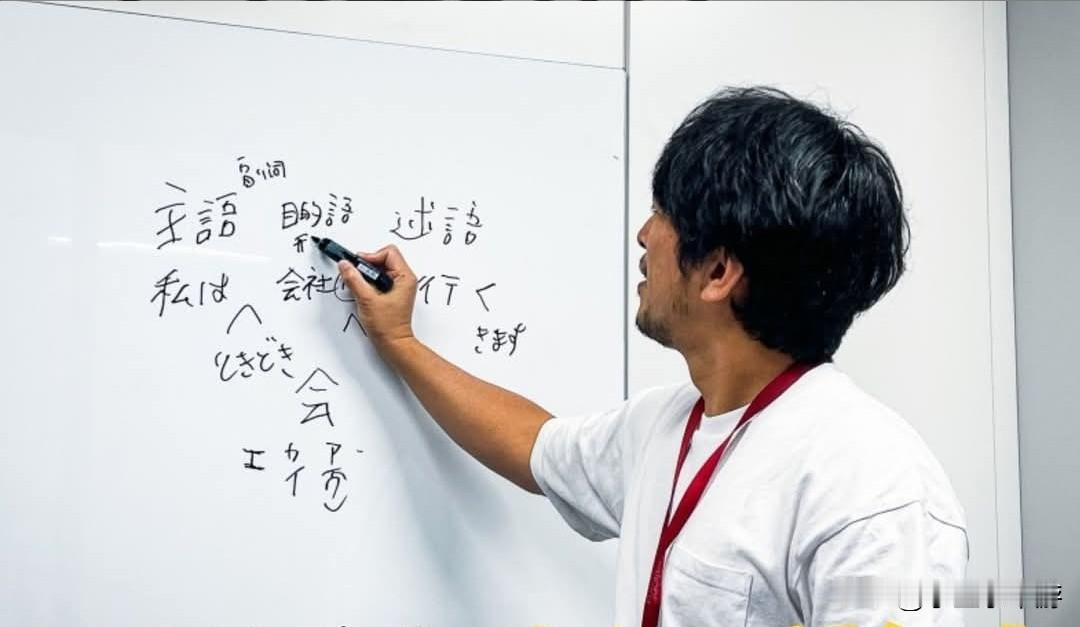 副词
主語 目的語 述語
私は 会社 行く
きます
ときどき
会
エ カ ア
イ